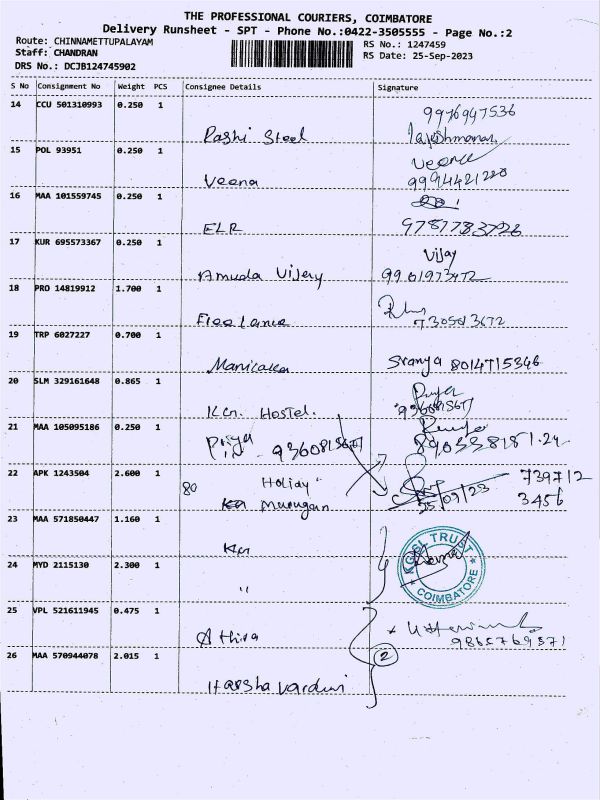 THE PROFESSIONAL COURIERS, COIMBATORE
Delivery Runsheet - SPT - Phone No.:0422-3505555 - Page No.:2
Route: CHINNAMETTUPALAYAM
RS No.: 1247459
Staff: CHANDRAN
RS Date: 25-Sep-2023
DRS No.: DCJB124745902
S No Consignment No Weight PCS Consignee Details Signature
14 CCU 501310993 0.250 1
9976947536
Pashi Steel
15 POL 93951 0.250 1
Veena
Veena 9994421220
16 MAA 101559745 0.250 1
ELR 9787783726
17 KUR 695573367 0.250 1
Vijay
Amuda Vijay
18 PRO 14819912 1.700 1
Freelance
19 TRP 6027227 0.700 1
Sranya 8014715346
20 SLM 329161648 0.865 1
Hostel.
21 MAA 105095186 0.250 1
Priya
22 APK 1243504 2.600 1
739712
80 Holiay"
25/09/23 3456
Murugan
23 MAA 571850447 1.160 1
KGISL TRUST
24 MYD 2115130 2.300 1
"
COIMBATORE
25 VPL 521611945 0.475 1
Athira
9865769571
26 MAA 570944078 2.015 1
2
Harshavardini